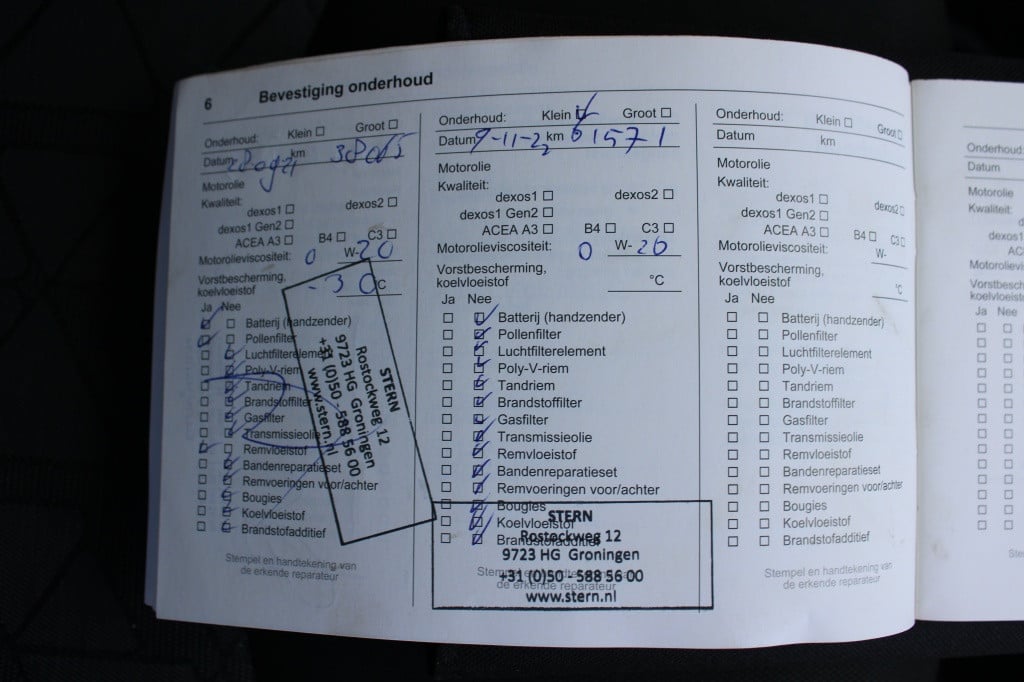 6 Bevestiging onderhoud
Onderhoud: Klein ☐ Groot ☐
Datum km
Motorolie
Kwaliteit:
dexos1 ☐ dexos2 ☐
dexos1 Gen2 ☐
ACEA A3 ☐ B4 ☐ C3 ☐
Motorolieviscositeit: 0 W-20
Vorstbescherming,
koelvloeistof -30 °C
Ja Nee
Batterij (handzender)
Pollenfilter
Luchtfilterelement
Poly-V-riem
Tandriem
Brandstoffilter
Gasfilter
Transmissieolie
Remvloeistof
Bandenreparatieset
Remvoeringen voor/achter
Bougies
Koelvloeistof
Brandstofadditief
Stempel en handtekening van
de erkende reparateur
STERN
Rostockweg 12
9723 HG Groningen
+31 (0)50 - 588 56 00
www.stern.nl
Onderhoud: Klein ☑ Groot ☐
Datum 9-11-22 km 61571
Motorolie
Kwaliteit:
dexos1 ☐ dexos2 ☐
dexos1 Gen2 ☐
ACEA A3 ☐ B4 ☐ C3 ☐
Motorolieviscositeit: 0 W-20
Vorstbescherming,
koelvloeistof °C
Ja Nee
Batterij (handzender)
Pollenfilter
Luchtfilterelement
Poly-V-riem
Tandriem
Brandstoffilter
Gasfilter
Transmissieolie
Remvloeistof
Bandenreparatieset
Remvoeringen voor/achter
Bougies
Koelvloeistof
Brandstofadditief
Stempel en handtekening van
de erkende reparateur
STERN
Rostockweg 12
9723 HG Groningen
+31 (0)50 - 588 56 00
www.stern.nl
Onderhoud: Klein ☐ Groot ☐
Datum km
Motorolie
Kwaliteit:
dexos1 ☐ dexos2 ☐
dexos1 Gen2 ☐
ACEA A3 ☐ B4 ☐ C3 ☐
Motorolieviscositeit: W-
Vorstbescherming,
koelvloeistof °C
Ja Nee
Batterij (handzender)
Pollenfilter
Luchtfilterelement
Poly-V-riem
Tandriem
Brandstoffilter
Gasfilter
Transmissieolie
Remvloeistof
Bandenreparatieset
Remvoeringen voor/achter
Bougies
Koelvloeistof
Brandstofadditief
Stempel en handtekening van
de erkende reparateur
Onderhoud:
Datum
Motorolie
Kwaliteit:
Ja Nee